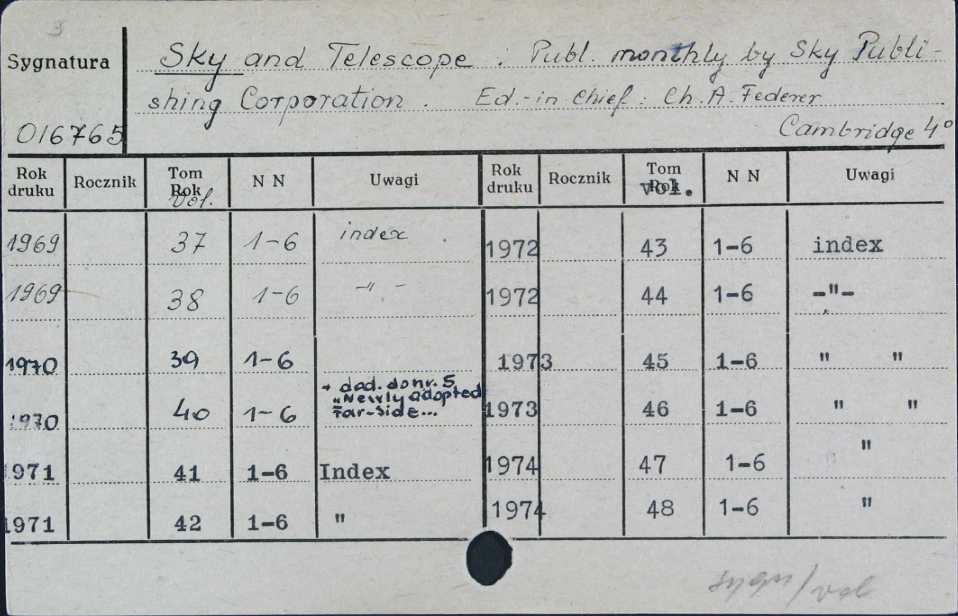 3
Sygnatura
Sky and Telescope. Publ. monthly by Sky Publi-
shing Corporation. Ed.-in Chief: Ch. A. Federer
016765
Cambridge 4°
Rok druku Rocznik Tom Rok Vol. N N Uwagi Rok druku Rocznik Tom Rok vol. N N Uwagi
1969 37 1-6 index 1972 43 1-6 index
1969 38 1-6 -"- 1972 44 1-6 -"-
1970 39 1-6 1973 45 1-6 " "
1970 40 1-6 + dod. do nr. 5 "Newly adopted Far-side... 1973 46 1-6 " "
1971 41 1-6 Index 1974 47 1-6 "
1971 42 1-6 " 1974 48 1-6 "
/vol